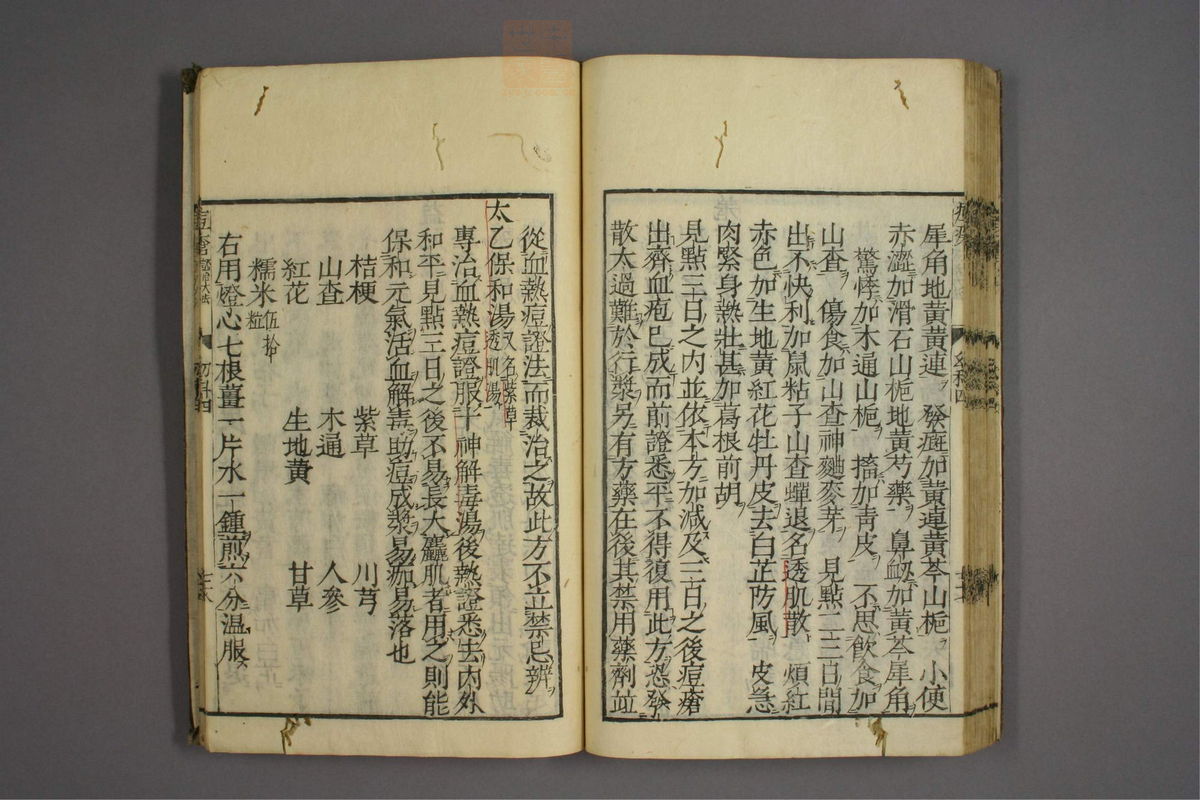 犀角地黃黃連　發癍加黃連黃芩山梔　小便
赤澀加滑石山梔地黃芍藥　鼻衂加黃芩犀角
驚悸加木通山梔　搐加青皮　不思飲食加
山查　傷食加山查神麯麥芽　見點二三日間
出不快利加鼠粘子山查蟬退名透肌散　煩紅
赤色加生地黃紅花牡丹皮去白芷防風　皮急
肉緊身熱壯甚加葛根前胡
見點三日之內並依本方加減及三日之後痘瘡
出齊血疱已成而前證悉平不得復用此方恐發
散太過難於行漿另有方藥在後其禁用藥劑竝
從血熱痘證法而裁治之故此方不立禁忌辨
太乙保和湯又名紫草透肌湯
專治血熱痘證服十神解毒湯後熱證悉去內外
和平見點三日之後不易長大麤肌者用之則能
保和元氣活血解毒助痘成漿易痂易落也
桔梗　紫草　川芎
山查　木通　人參
紅花　生地黃　甘草
糯米伍拾粒
右用燈心七根薑一片水一鍾煎六分温服